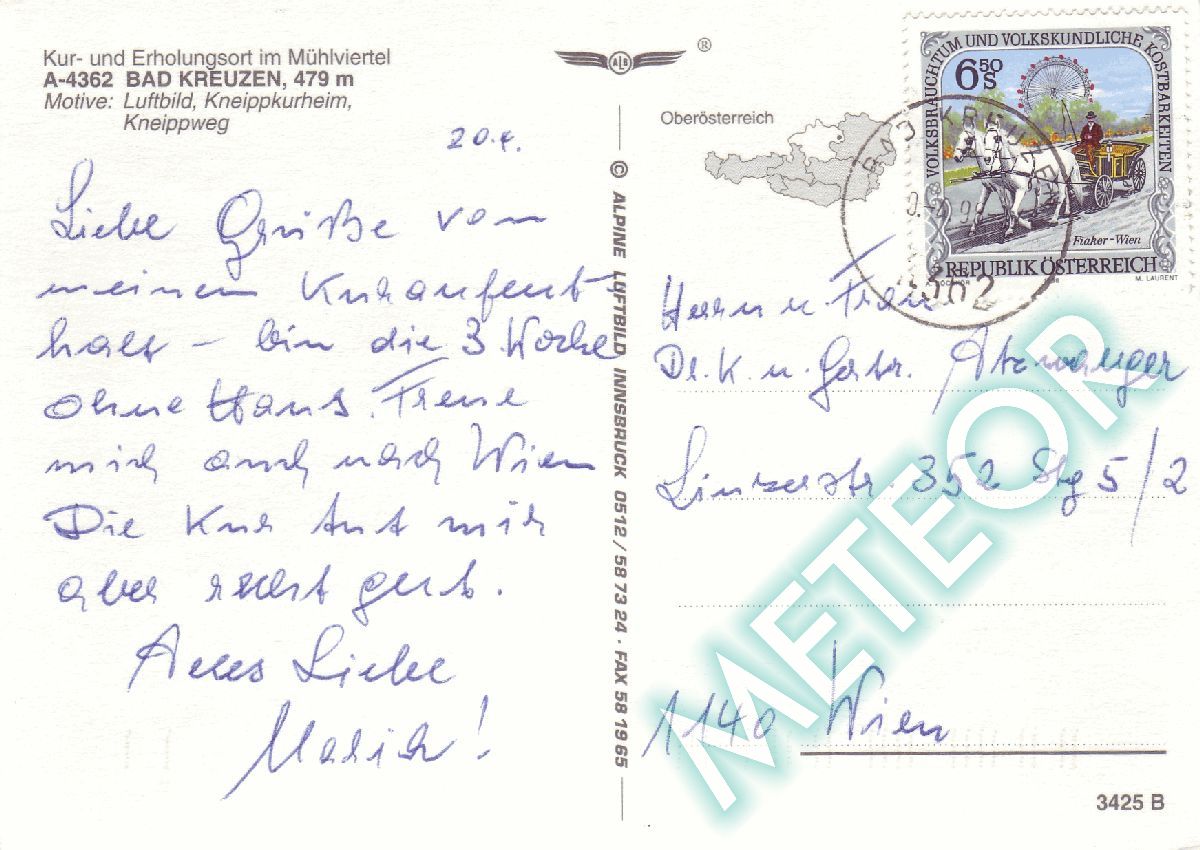 Kur- und Erholungsort im Mühlviertel
A-4362 BAD KREUZEN, 479 m
Motive: Luftbild, Kneippkurheim,
Kneippweg
20.4.
Liebe Grüße von
meinem Kuraufent
halt – bin die 3. Woche
ohne Hans. Freue
mich auch nach Wien
Die Kur tut mir
aber recht gut.
Alles Liebe
ALB ®
Oberösterreich
© ALPINE LUFTBILD INNSBRUCK 0512 / 58 73 24 · FAX 58 19 65
VOLKSBRAUCHTUM UND VOLKSKUNDLICHE KOSTBARKEITEN
6 50
S
Fiaker-Wien
REPUBLIK ÖSTERREICH
M. LAURENT
BAD KREUZEN
4362
Herrn u Frau
Dr. K. u. Gertr. Atzwanger
Linzerstr 352 Stg 5/2
1140 Wien
3425 B
METEOR